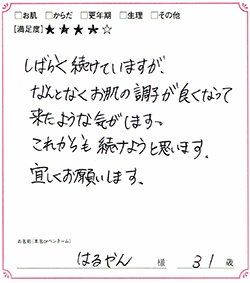 □お肌 □からだ □更年期 □生理 □その他
[満足度]★★★★☆
しばらく続けていますが、
なんとなくお肌の調子が良くなって
来たような気がします。
これからも続けようと思います。
宜しくお願いします。
お名前(本名orペンネーム)
はるやん 様 31歳